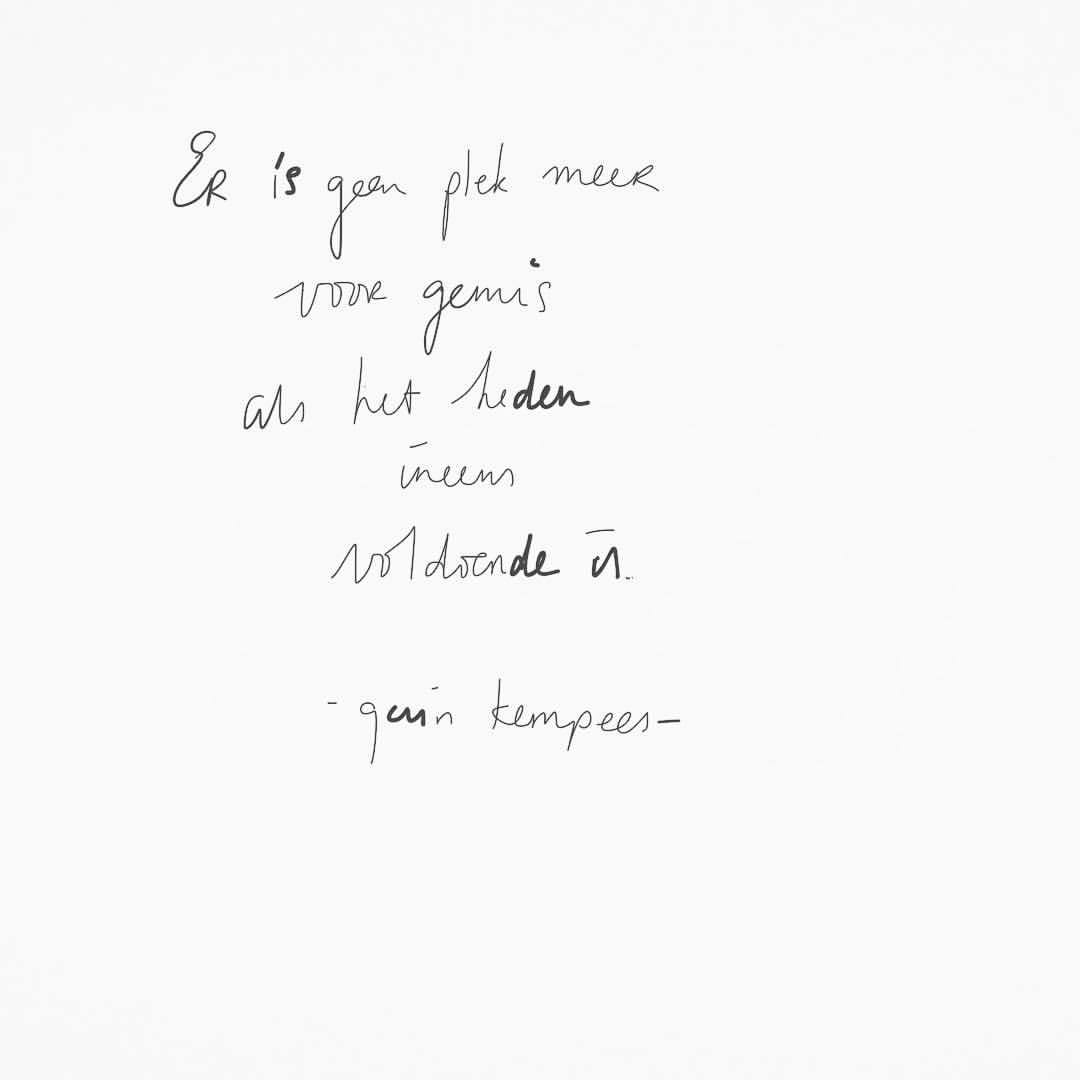 Er is geen plek meer
voor gemis
als het heden
ineens
voldoende is.
- kempees -